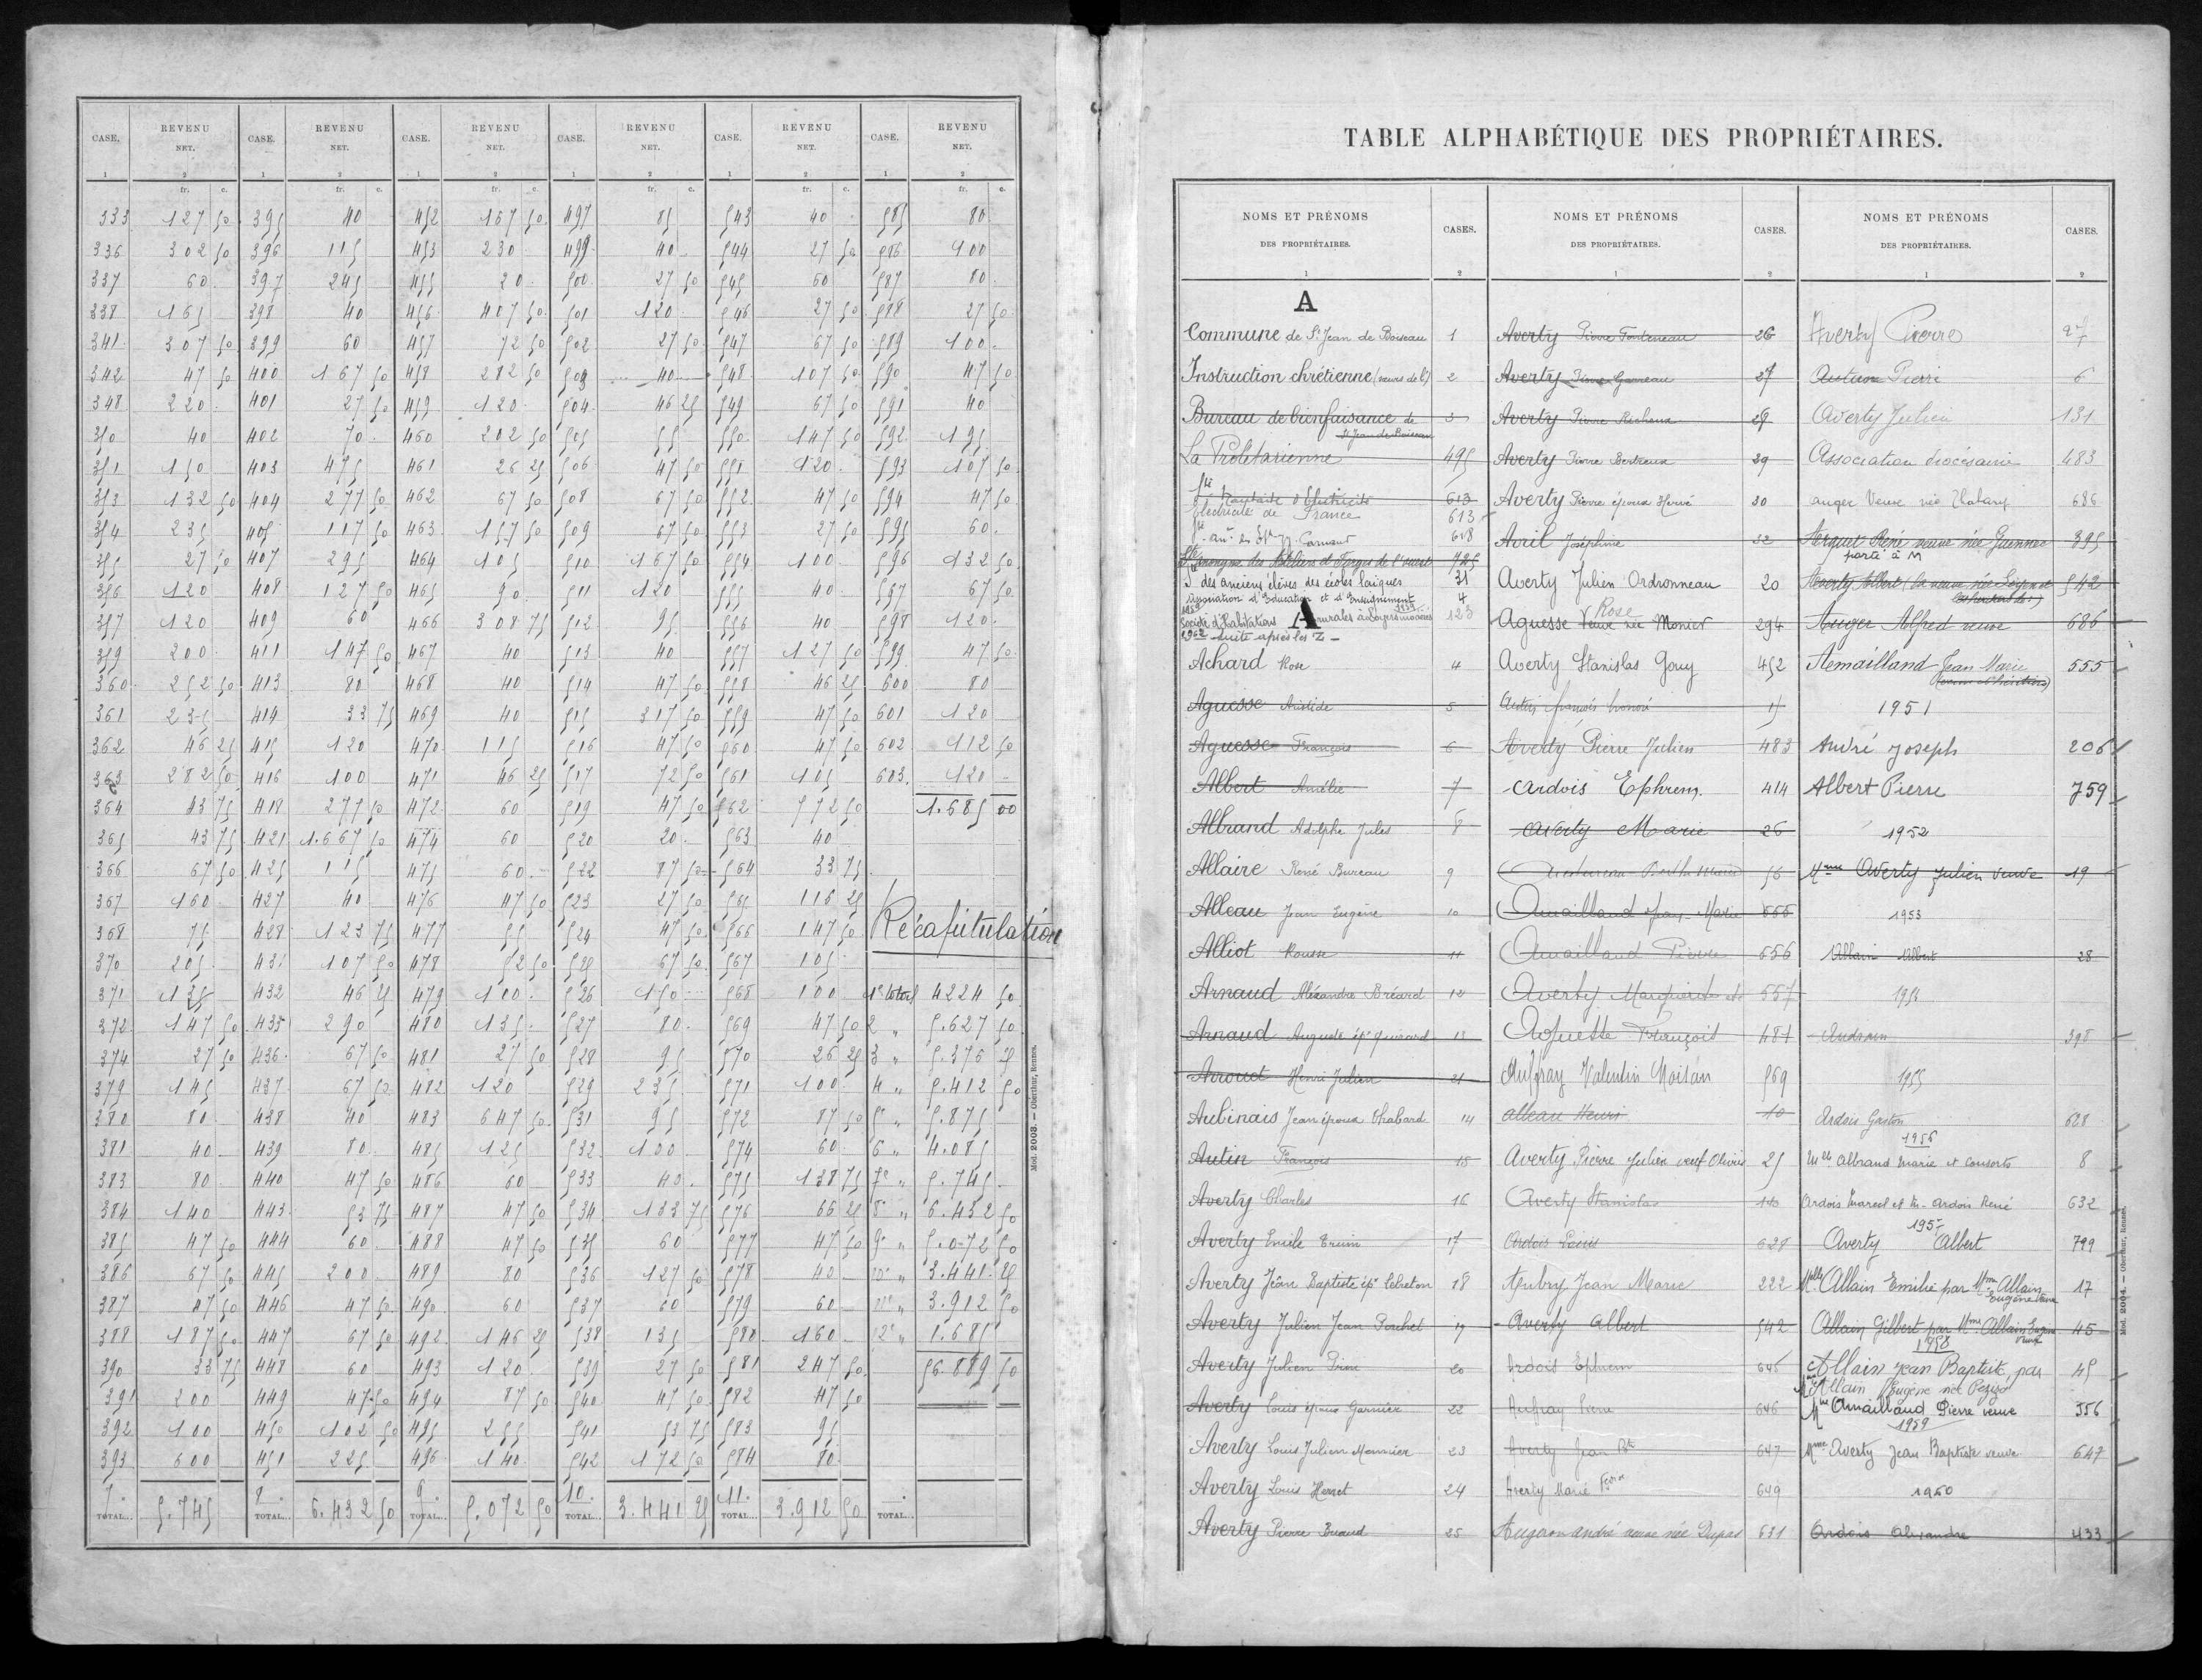 CASE. REVENU NET. CASE. REVENU NET. CASE. REVENU NET. CASE. REVENU NET. CASE. REVENU NET. CASE. REVENU NET.
1 2 1 2 1 2 1 2 1 2 1 2
fr. c. fr. c. fr. c. fr. c. fr. c. fr. c.
333 127 50 395 40 452 167 50 497 85 543 40 585 80
336 302 50 396 115 453 230 499 40 544 27 50 586 100
337 60 397 245 455 20 500 27 50 545 60 587 80
338 165 398 40 456 407 50 501 120 546 27 50 588 27 50
341 307 50 399 60 457 72 50 502 27 50 547 67 50 589 100
342 47 50 400 167 50 458 282 50 503 40 548 107 50 590 47 50
348 220 401 27 50 459 120 504 46 25 549 67 50 591 40
350 40 402 70 460 202 50 505 55 550 147 50 592 195
351 150 403 475 461 26 25 506 47 50 551 120 593 107 50
353 132 50 404 277 50 462 67 50 508 67 50 552 47 50 594 47 50
354 235 405 117 50 463 157 50 509 67 50 553 27 50 595 60
355 27 50 407 295 464 105 510 167 50 554 100 596 132 50
356 120 408 127 50 465 90 511 120 555 40 597 67 50
357 120 409 60 466 308 75 512 95 556 40 598 120
359 200 411 147 50 467 40 513 40 557 127 50 599 47 50
360 252 50 413 80 468 40 514 47 50 558 46 25 600 80
361 235 414 33 75 469 40 515 317 50 559 47 50 601 120
362 46 25 415 120 470 115 516 47 50 560 47 50 602 112 50
363 282 50 416 100 471 46 25 517 72 50 561 105 603 120
364 43 75 418 277 50 472 60 519 47 50 562 772 50 1.685 00
365 43 75 421 1.667 50 474 60 520 20 563 40
366 67 50 425 115 475 60 522 87 50 564 33 75
367 160 427 40 476 47 50 523 27 50 565 116 25
368 75 428 123 75 477 55 524 47 50 566 147 50 Récapitulation
370 205 431 107 50 478 52 50 525 67 50 567 105
371 135 432 46 25 479 100 526 150 568 100 1er total 4224 50
372 147 50 435 290 480 135 527 80 569 47 50 2 " 5.627 50
374 27 50 436 67 50 481 27 50 528 95 570 26 25 3 " 5.376 25
379 145 437 67 50 482 120 529 235 571 100 4 " 5.412 50
380 80 438 40 483 647 50 531 95 572 87 50 5e " 5.875
381 40 439 80 485 125 532 100 574 60 6 " 4.085
383 80 440 47 50 486 60 533 40 575 138 75 7e " 5.745
384 140 443 53 75 487 47 50 534 133 75 576 66 25 8e " 6.432 50
385 47 50 444 60 488 47 50 535 60 577 47 50 9e " 5.072 50
386 67 50 445 200 489 80 536 127 50 578 40 10e " 3.441 25
387 47 50 446 47 50 490 60 537 60 579 60 11e " 3.912 50
388 187 50 447 67 50 492 146 25 538 135 580 160 12e " 1.685
390 33 75 448 60 493 120 539 27 50 581 247 50 56.889 50
391 200 449 47 50 494 87 50 540 47 50 582 47 50
392 100 450 102 50 495 255 541 53 75 583 95
393 600 451 225 496 140 542 172 50 584 80
7. 8. 9. 10. 11.
TOTAL... 5.745 TOTAL... 6.432 50 TOTAL... 5.072 50 TOTAL... 3.441 25 TOTAL... 3.912 50 TOTAL...
Mod. 2003. — Oberthur, Rennes.
TABLE ALPHABÉTIQUE DES PROPRIÉTAIRES.
NOMS ET PRÉNOMS DES PROPRIÉTAIRES. CASES. NOMS ET PRÉNOMS DES PROPRIÉTAIRES. CASES. NOMS ET PRÉNOMS DES PROPRIÉTAIRES. CASES.
1 2 1 2 1 2
A
Commune de St Jean de Boiseau 1
Instruction chrétienne 2
Bureau de bienfaisance de St Jean de Boiseau 3
La Prolétarienne 495
613
Electricité de France 613
J. J. Carnaud 618
Sté anonyme des Ateliers et Forges de l'ouest 725
S. des anciens élèves des écoles laïques 31
Association d'Education et d'Enseignement 4
1959
Société d'Habitations rurales à loyers modérés 123
A
1962 - suite après les Z -
Achard Rose 4
Aguesse Aristide 5
Aguesse François 6
Albert Amélie 7
Albrand Adolphe Jules 8
Allaire René Bureau 9
Alleau Jean Eugène 10
Alliot Rousse 11
Arnaud Alexandre Bréard 12
Arnaud Auguste ép. Guérard 13
Arrouet Henri Julien 21
Aubinais Jean époux Chabard 14
Autin François 15
Averty Charles 16
Averty Emile 17
Averty Jean Baptiste ép. Lebreton 18
Averty Julien Jean Porchet 19
Averty Julien Pierre 20
Averty Louis époux Garnier 22
Averty Louis Julien Monnier 23
Averty Louis Herret 24
Averty Pierre 25
Averty Pierre 26
Averty Pierre 27
Averty Pierre 28
Averty Pierre 29
Averty Pierre époux Hervé 30
Avril Joséphine 32
Averty Julien Ordronneau 20
Aguesse Rose veuve née Monier 294
Averty Stanislas Gouy 452
François 15
Averty Pierre Julien 483
Ardois Ephrem 414
Averty Marie 26
56
Amailland Jean-Marie 555
Amailland Pierre 556
Averty 557
François 484
Aufray Valentin Moisan 569
Alleau Henri 10
Averty Pierre Julien veuf Olivier 25
Averty Stanislas
Ardois Louis 628
Aubry Jean Marie 222
Averty Albert 542
Ardois Ephrem 645
Aufray Pierre 646
Averty Jean Bte 647
Averty Marie 649
André veuve née Dupas 631
Averty Pierre
Pierre 6
Averty Julien 131
Association diocésaine 483
Auger Veuve née 686
René veuve née 395
porté à M
Averty Albert la veuve née 542
Auger Alfred veuve 686
Amailland Jean Marie 555
1951
André Joseph 206
Albert Pierre 759
1952
Mme Averty Julien veuve 19
1953
Allain Albert 28
1954
Audrain 398
1955
Ardois Gaston 628
1956
Melle Albrand Marie et consorts 8
Ardois Marcel et M. Ardois René 632
1957
Averty Albert 799
Melle Allain Emilie par Mme Allain Eugène veuve 17
Allain Gilbert par Mme Allain Eugène veuve 45
1958
Allain Jean Baptiste, par 45
Mme Allain Eugène née
Mme Amailland Pierre veuve 556
1959
Mme Averty Jean Baptiste veuve 647
1960
Ardois Alexandre 433
Mod. 2004. — Oberthur, Rennes.